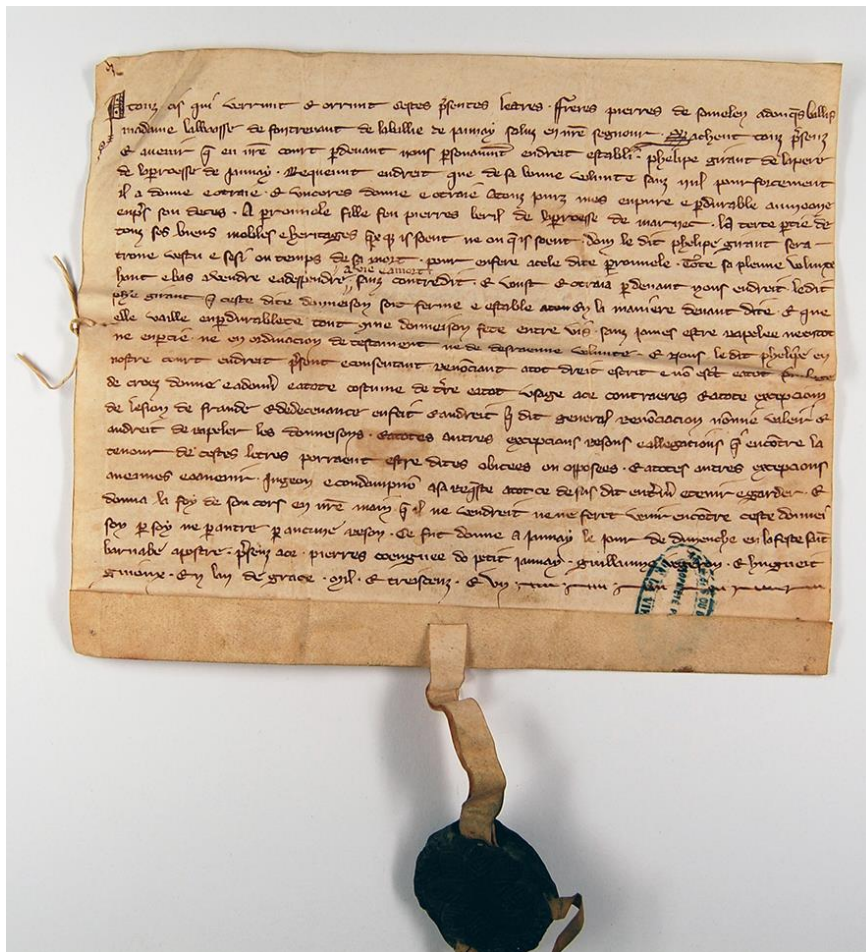 A touz cis qui verrunt & orrunt cestes p̃sentes letres . Freres pierres de
madame labbaesse de fontevaut de la baillie de jaunay saluz en nr̃e segnour . sachent touz p̃senz
& avenir q̃ en nr̃e court p̃devant nous p̃sonaumt endreit establi . phelipe giraut de
de la p̃roesse de jaunay . Requenuit endreit que de sa bonne volunte sanz nul pourforcement
il a donne e otraie . & uncores donne e otraie a touz jurz mes en pure e p̃durable aumone
enp̃s son deces . A p̃ronnele fille feu pierres beril de la p̃roesse de marnec . la terce p̃tie de
touz ses biens mobles e heritages q̃x q̃ is soent ne ou q̃ is soent . dom le dit phelipe giraut sera
trove vestu e sesi ou temps de sa mort . pour en fere a cele dite p̃ronnele . tote sa plenne volunte
haut e bas a vendre e a despendre a vie e a mort sanz contredit . & voust & otraia p̃devant nous endreit le dit
phe giraut q̃ ceste dite donneison soit ferme e estable en la maniere devant dite . & que
elle vaille en p̃durablete tout 9me donneison fete entre vis . sanz james estre rapelee ne en tot
ne en p̃tie ne en ordinacion de testament ne de derraenne volunte . & nous le dit phelipe en
nostre court endreit p̃sent e consentant renonciant a tot dreit escrit e nõ esc̃t e a tot
de croez donne e a donn̄ e a tote costume de t̃re e a tot usage a ce contraeres & a tote excepcion
de lesion de fraude & de decevance en fait & en dreit q̃ dit general renonciacion nõnie valeir &
au dreit de rapeler les donneisons . & a totes autres excepcions resons e allegacions q̃ encontre la
tenour de cestes letres porraent estre dites obicees ou opposees . & a totes autres excepcions
a sa req̃ste a tot ce desus dit e tenir e garder . &
donna la foy de son cors en nr̃e main q̃ il ne vendreit ne ne feret venir encontre ceste donnei
soy p̃ soy ne p̃ autre p̃ aucune reson . Ce fut donne a jaunay le jour de dimenche en la feste saint
barnabe apostre . p̃senz a ce . pierres do petit jaunay . guillaume . & hugueit
& en lan de grace . mil . & treiscenz . & vii